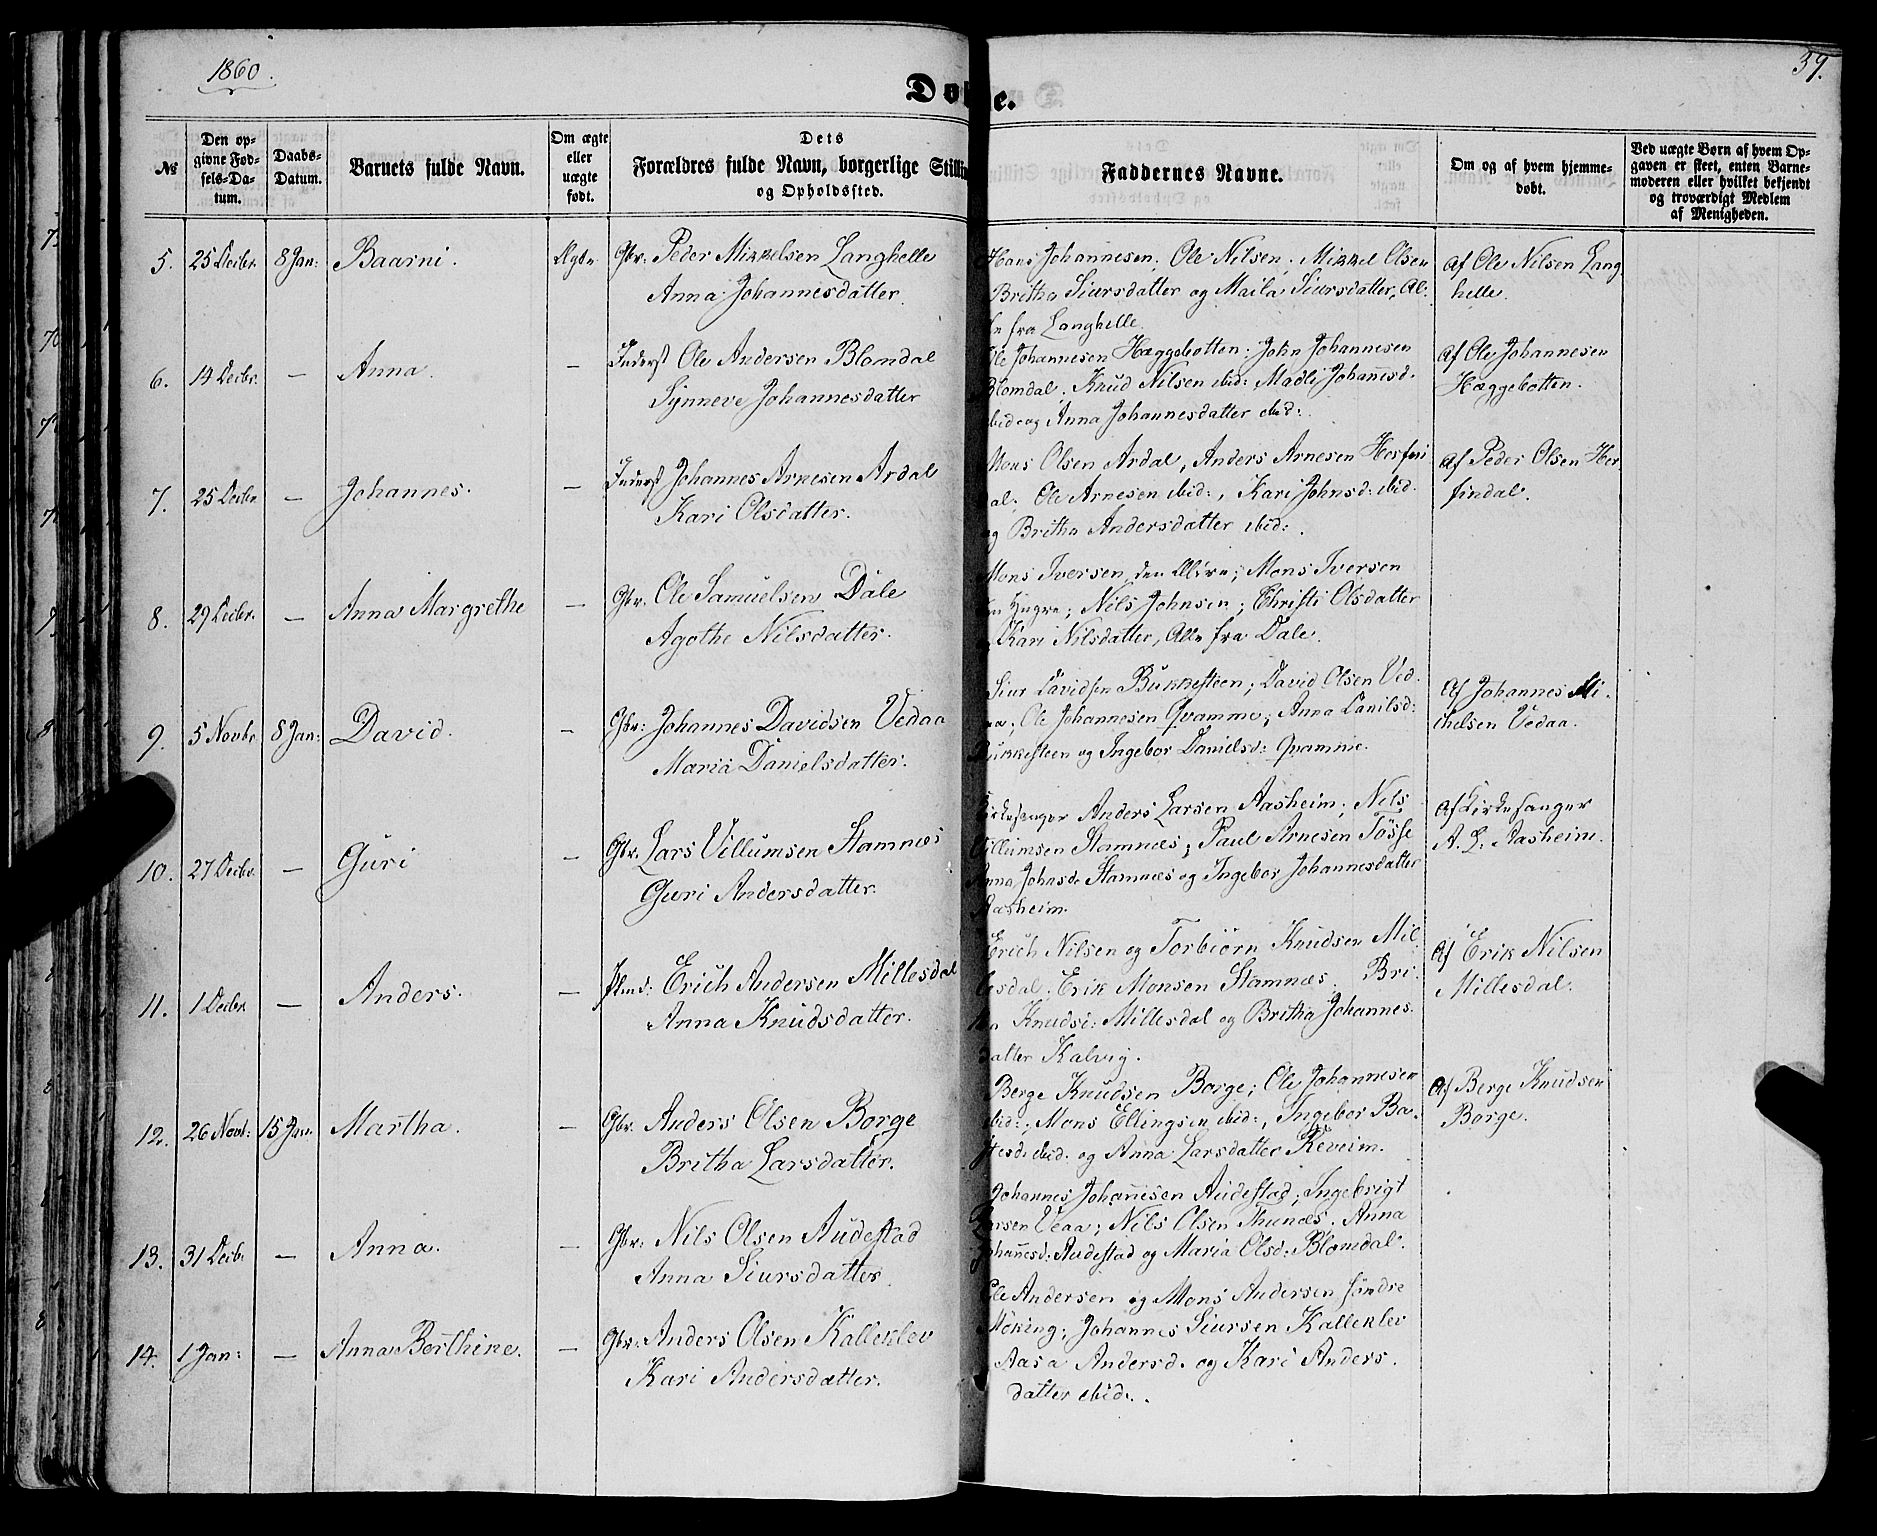 1860.
39.
Døbte.
№
Den opgivne Fødsels-Datum.
Daabs-Datum.
Barnets fulde Navn.
Om ægte eller uægte født.
Dets Forældres fulde Navn, borgerlige Stilling og Opholdssted.
Faddernes Navne.
Om og af hvem hjemmedøbt.
Ved uægte Børn af hvem Opgaven er skeet, enten Barnemoderen eller hvilket bekjendt og troværdigt Medlem af Menigheden.
5. 25 Decbr. 8 Jan: Baarni. Ægte Gbr: Peder Mikkelsen Langhelle
Anna Johannesdatter.
Hans Johannesen, Ole Nilsen, Mikkel Olsen
Britha Siursdatter og Maila Siursdatter, Al-
le fra Langhelle.
Af Ole Nilsen Lang
helle.
6. 14 Decbr. — Anna. — Inderst Ole Andersen Blomdal
Synneve Johannesdatter
Ole Johannesen Hæggebotten; John Johannesen
Blomdal; Knud Nilsen ibid: Madli Johanesd.
ibid og Anna Johannesdatter ibid:
Af Ole Johannesen
Hæggebotten.
7. 25 Decbr — Johannes. — Inderst Johannes Arnesen Ardal
Kari Olsdatter.
Mons Olsen Ardal, Anders Arnesen Herfin
dal; Ole Arnesen ibid:, Kari Johnsd: ibid.
og Britha Andersdatter ibid:.
Af Peder Olsen Her
findal.
8. 29 Decbr. — Anna Margrethe — Gbr. Ole Samuelsen Dale
Agathe Nilsdatter.
Mons Iversen den Ældre; Mons Iversen
den Yngre; Nils Johnsen; Christi Olsdatter
og Kari Nilsdatter, Alle fra Dale.
9. 5 Novbr. 8 Jan: David. — Gbr: Johannes Davidsen Vedaa
Maria Danielsdatter.
Siur Davidsen Bukkesteen; David Olsen Ved-
aa; Ole Johannesen Qvamme; Anna Danilsd:
Bukkesteen og Ingebor Danielsd: Qvamme.
Af Johannes Mi-
chelsen Vedaa.
10. 27 Decbr. — Guri — Gbr. Lars Villumsen Stamnæs
Guri Andersdatter.
Kirkesanger Anders Larsen Aasheim; Nils
Villumsen Stamnæs; Paul Arnesen Tösse
Anna Johnsd: Stamnæs og Ingebor Johannesdatter
Aasheim.
Af Kirkesanger
A. L. Aasheim.
11. 1 Decbr — Anders. — Erich Andersen Millesdal
Anna Knudsdatter.
Erich Nilsen og Torbiörn Knudsen Mil-
lesdal. Erik Monsen Stamnæs. Bri-
tha Knudsd: Millesdal og Britha Johannes-
datter Kalvig.
Af Erik Nilsen
Millesdal.
12. 26 Novb: 15 Jan. Martha. — Gbr. Anders Olsen Borge
Britha Larsdatter.
Berge Knudsen Borge; Ole Johannesen
ibid:; Mons Ellingsen ibid:, Ingebor Ba-
stesd: ibid. og Anna Larsdatter Reveim.
Af Berge Knudsen
Borge.
13. 31 Decbr — Anna. — Gbr: Nils Olsen Audestad
Anna Siursdatter.
Johannes Johanesen Audestad; Ingebrigt
Larsen Veaa; Nils Olsen Munæs. Anna
Johanesd: Audestad og Maria Olsd: Blomdal.
14. 1 Jan: — Anna Berthine. — Gbr: Anders Olsen Kalleklev
Kari Andersdatter.
Ole Andersen og Mons Andersen söndre
Möking; Johannes Siursen Kalleklev
Aasa Andersd. og Kari Anders-
datter ibid:.